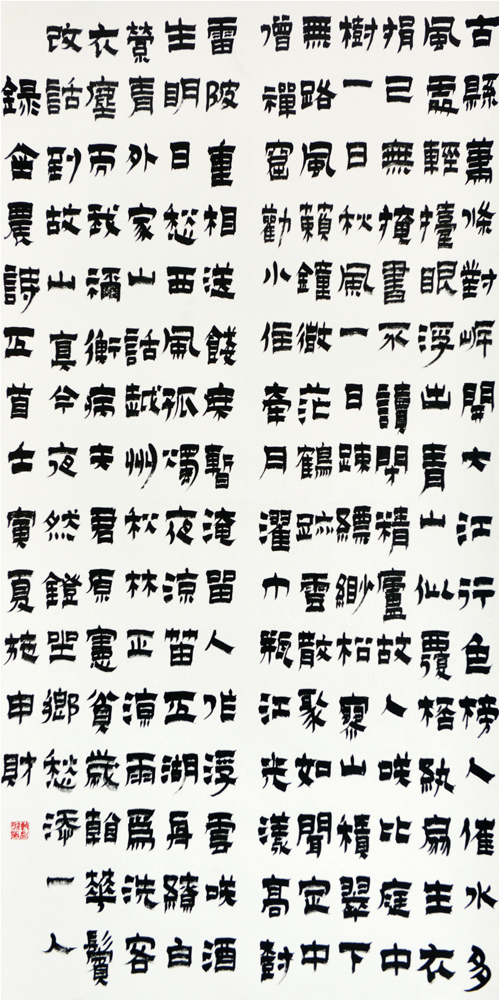 古縣蕭條對岸開大江行色榜人催水多
風處輕擡眼浮出青山似覆桮紈扇生衣
捐已無掩書不讀閉精廬故人咲比庭中
樹一日秋風一日疎縹緲松寮山積翠下
無路風籟鐘微茫鶴跡雲散聚如聞定中
僧禪窟勸小住牽月濯巾瓶江光漾高樹
雷陂重相送餞席暫淹留人作浮雲咲酒
生明日愁西風孤燭夜涼笛五湖舟續白
營青外家山話越州秋林正涼雨為洗客
衣塵而我禰衡病夫君原憲貧歲朝華鬢
改話到故山真今夜然鐙坐鄉愁添一人
錄金農詩五首壬寅夏施申財